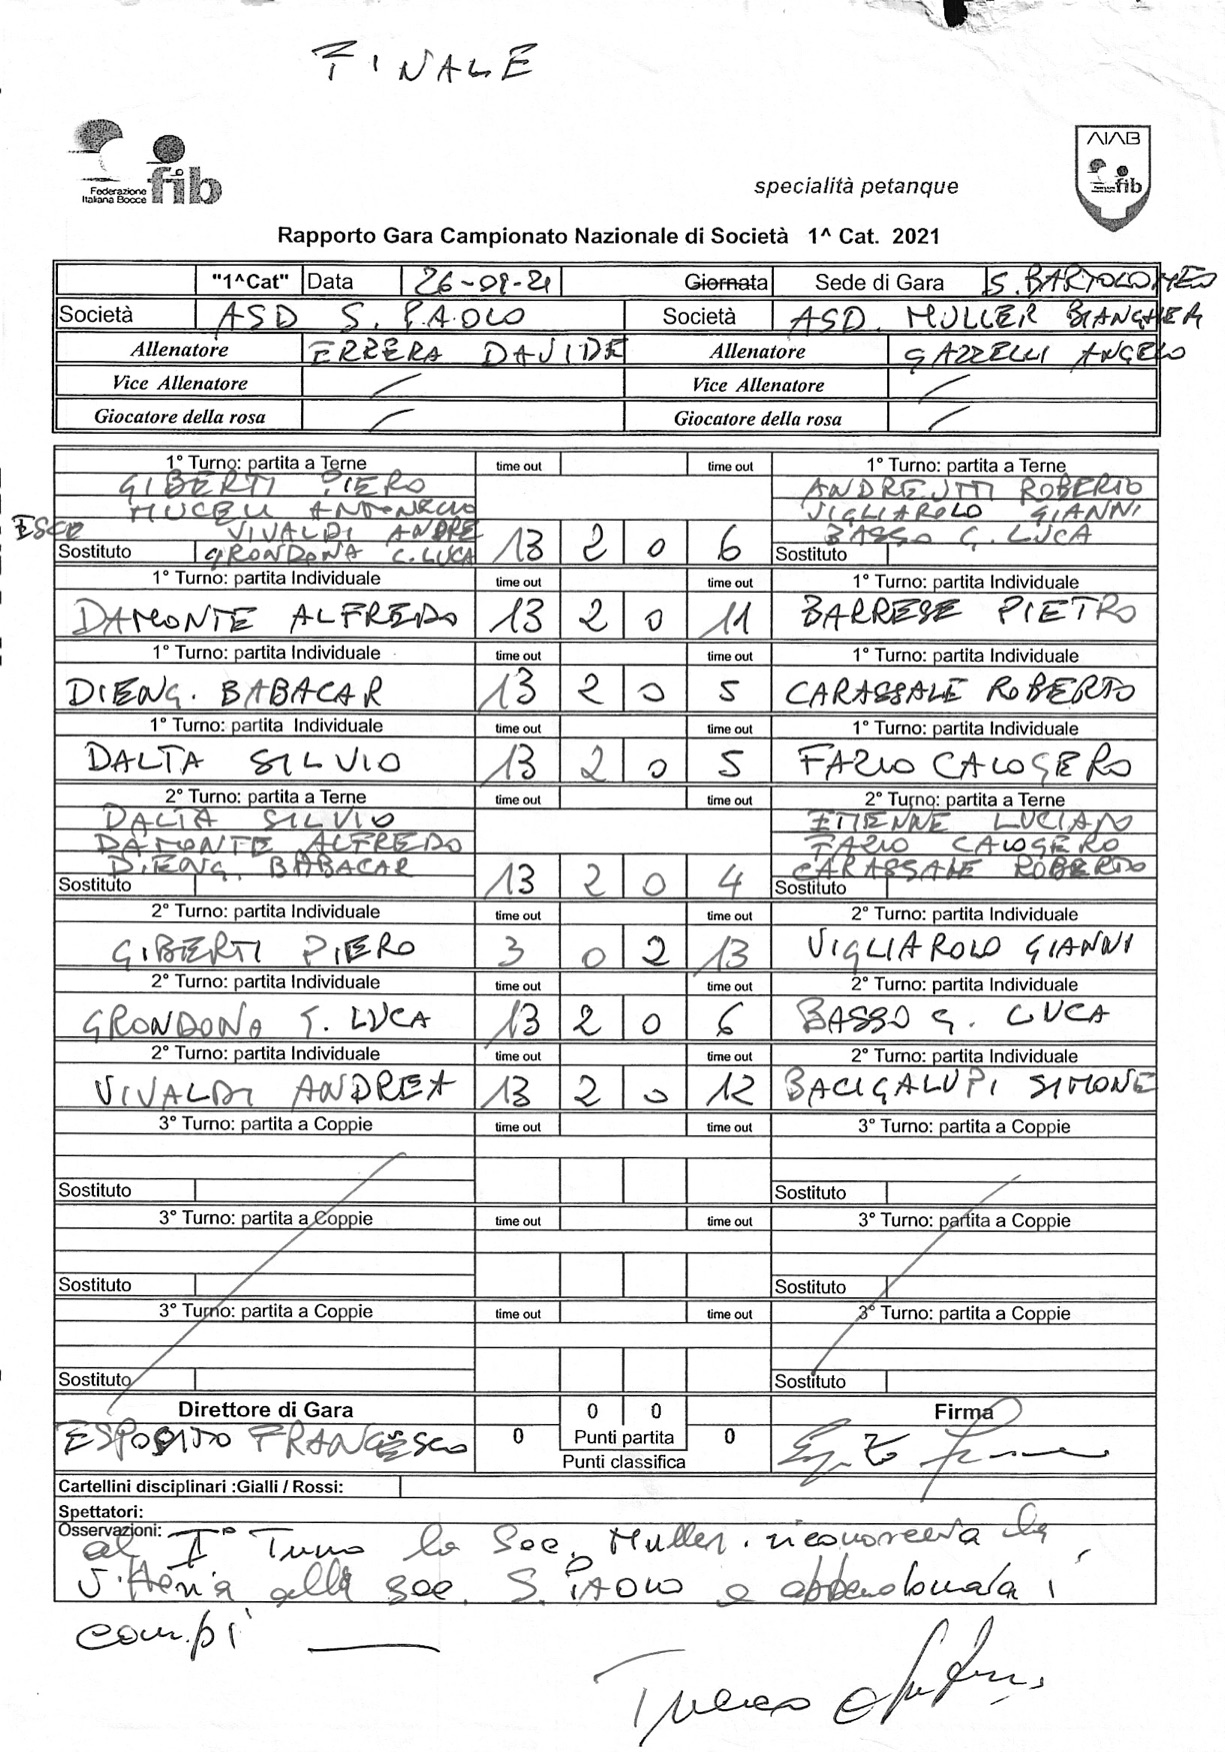 FINALE
Federazione Italiana Bocce fib
AIAB fib
specialità petanque
Rapporto Gara Campionato Nazionale di Società 1^ Cat. 2021
"1^Cat" Data 26-09-21 Giornata Sede di Gara S. BARTOLOMEO
Società ASD S. PAOLO Società ASD. MULLER BIANCHERI
Allenatore ERRERA DAVIDE Allenatore GAZZELLI ANGELO
Vice Allenatore Vice Allenatore
Giocatore della rosa Giocatore della rosa
1° Turno: partita a Terne time out time out 1° Turno: partita a Terne
GIBERTI PIERO ROBERTO
MUCELI VIGLIAROLO GIANNI
ESCE VIVALDI ANDRE BASSO G. LUCA
Sostituto GRONDONA G. LUCA 13 2 0 6 Sostituto
1° Turno: partita Individuale time out time out 1° Turno: partita Individuale
DAMONTE ALFREDO 13 2 0 11 BARRESE PIETRO
1° Turno: partita Individuale time out time out 1° Turno: partita Individuale
DIENG. BABACAR 13 2 0 5 CARASSALE ROBERTO
1° Turno: partita Individuale time out time out 1° Turno: partita Individuale
DALTA SILVIO 13 2 0 5 FAZIO CALOGERO
2° Turno: partita a Terne time out time out 2° Turno: partita a Terne
DALTA SILVIO ETIENNE LUCIANO
DAMONTE ALFREDO FAZIO CALOGERO
DIENG. BABACAR CARASSALE ROBERTO
Sostituto 13 2 0 4 Sostituto
2° Turno: partita Individuale time out time out 2° Turno: partita Individuale
GIBERTI PIERO 3 0 2 13 VIGLIAROLO GIANNI
2° Turno: partita Individuale time out time out 2° Turno: partita Individuale
GRONDONA G. LUCA 13 2 0 6 BASSO G. LUCA
2° Turno: partita Individuale time out time out 2° Turno: partita Individuale
VIVALDI ANDREA 13 2 0 12 BACIGALUPI SIMONE
3° Turno: partita a Coppie time out time out 3° Turno: partita a Coppie
Sostituto Sostituto
3° Turno: partita a Coppie time out time out 3° Turno: partita a Coppie
Sostituto Sostituto
3° Turno: partita a Coppie time out time out 3° Turno: partita a Coppie
Sostituto Sostituto
Direttore di Gara 0 0 Firma
ESPOSITO FRANCESCO 0 Punti partita 0
Punti classifica
Cartellini disciplinari :Gialli / Rossi:
Spettatori:
Osservazioni: al I° Turno la Soc. Muller. riconosceva la
vittoria alla soc. S. PAOLO e abbandonava i
campi